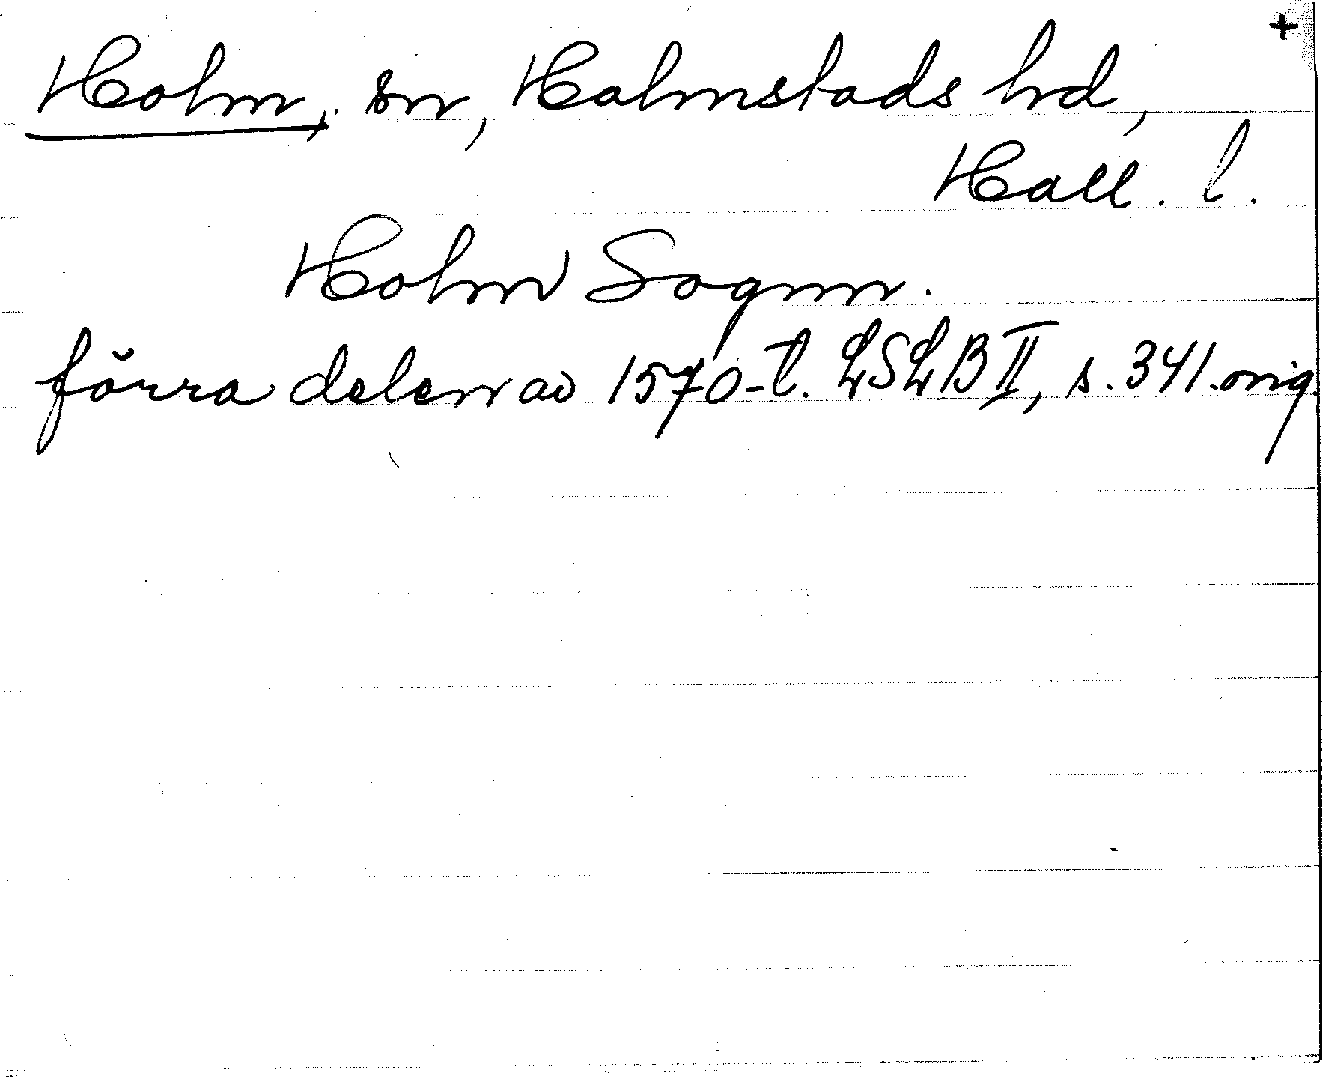 +
Holm, sn, Halmstads hd,
Hall. l.
Holm Sognn.
förra delen av 1570-t. LSLB II, s. 341. orig.